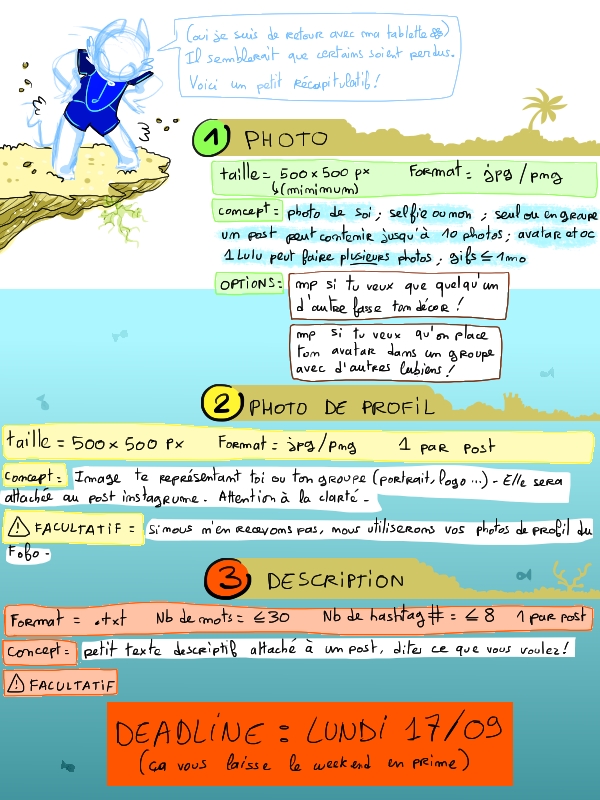 (oui je suis de retour avec ma tablette)
Il semblerait que certains soient perdus.
Voici un petit récapitulatif!
1 PHOTO
taille = 500 x 500 px Format = jpg / png
↳(minimum)
concept: photo de soi ; selfie ou non ; seul ou en groupe
un post peut contenir jusqu'à 10 photos; avatar et oc
1 Lulu peut faire plusieurs photos ; gifs ≤ 1mo
OPTIONS: mp si tu veux que quelqu'un
d'autre fasse ton décor !
mp si tu veux qu'on place
ton avatar dans un groupe
avec d'autres lubiens !
2 PHOTO DE PROFIL
taille = 500 x 500 px Format = jpg / png 1 par post
concept: Image te représentant toi ou ton groupe (portrait, logo ...) - Elle sera
attachée au post instagrume. Attention à la clarté -
⚠ FACULTATIF = Si nous n'en recevons pas, nous utiliserons vos photos de profil du
Fofo -
3 DESCRIPTION
Format = .txt Nb de mots = ≤30 Nb de hashtag # = ≤ 8 1 par post
Concept: petit texte descriptif attaché à un post, dites ce que vous voulez!
⚠ FACULTATIF
DEADLINE : LUNDI 17/09
(ça vous laisse le weekend en prime)